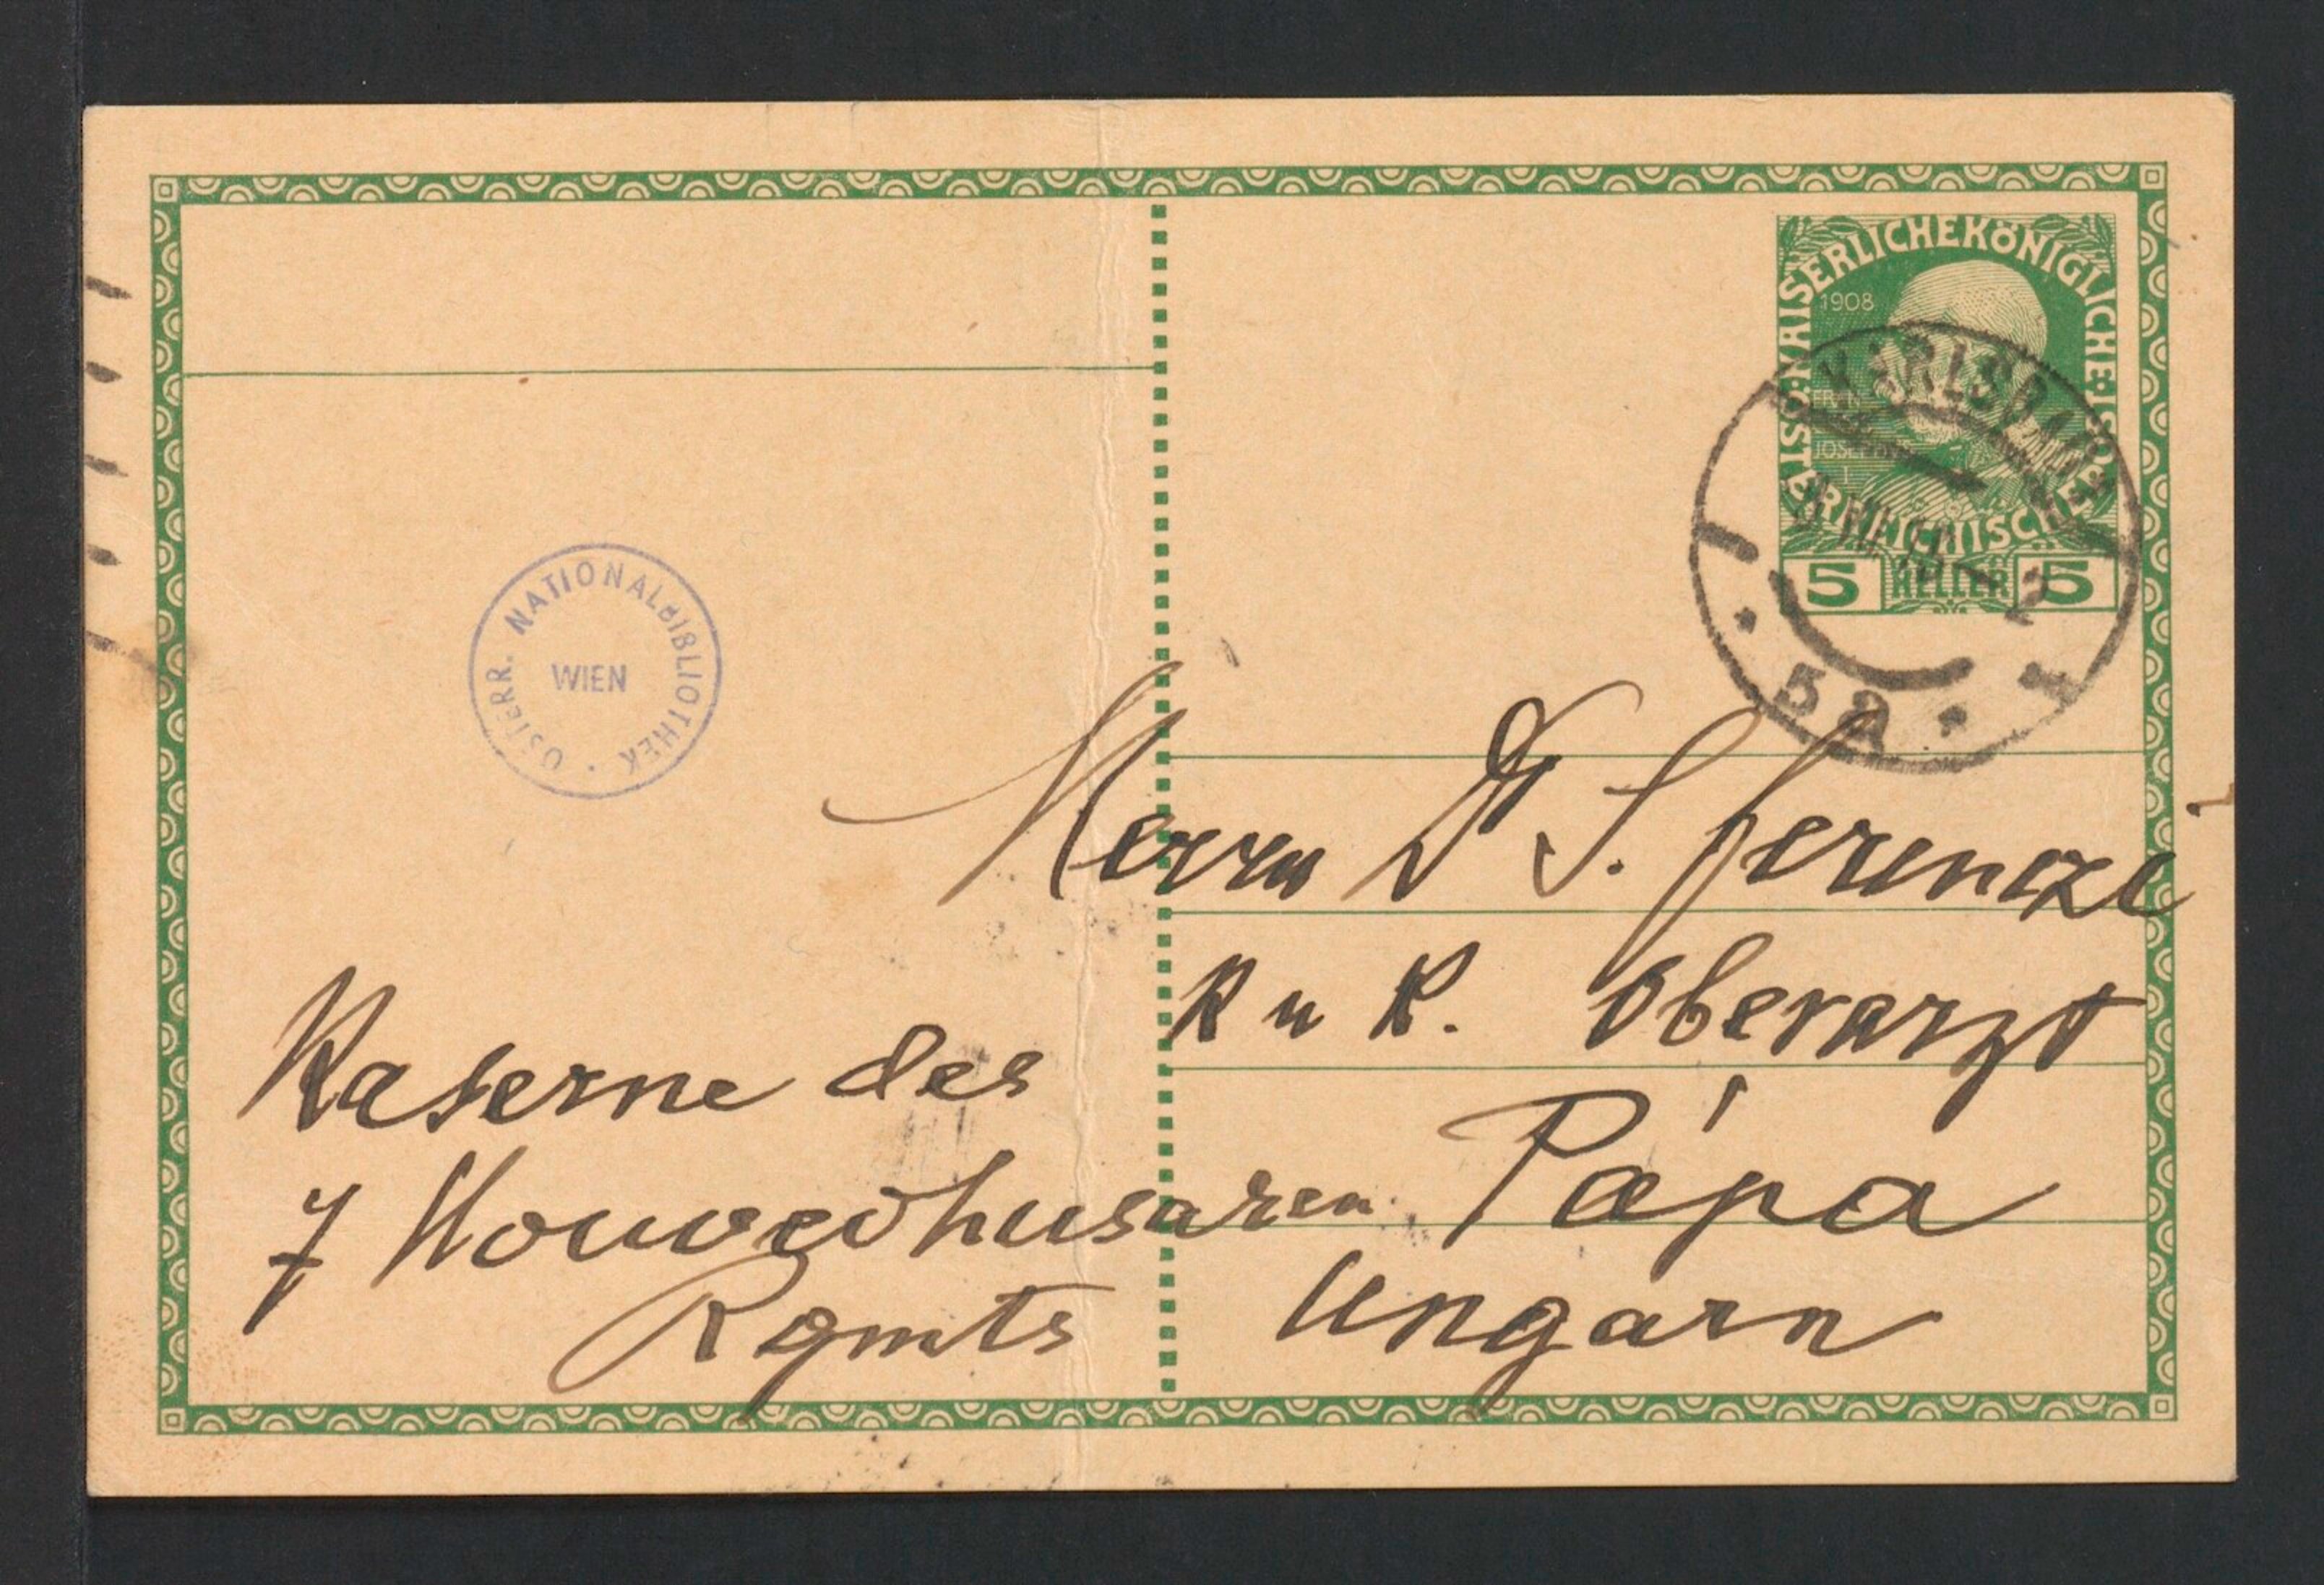 KAISERLICHE KÖNIGLICHE ÖSTERREICHISCHE
1908
JOSEPH
I
5 HELLER 5
KARLSBAD
5a
ÖSTERR. NATIONALBIBLIOTHEK
WIEN
Herrn Dr S. Ferenczi
K u K. Oberarzt
Pápa
Ungarn
Kaserne des
7 Honvedhusaren
Rgmts